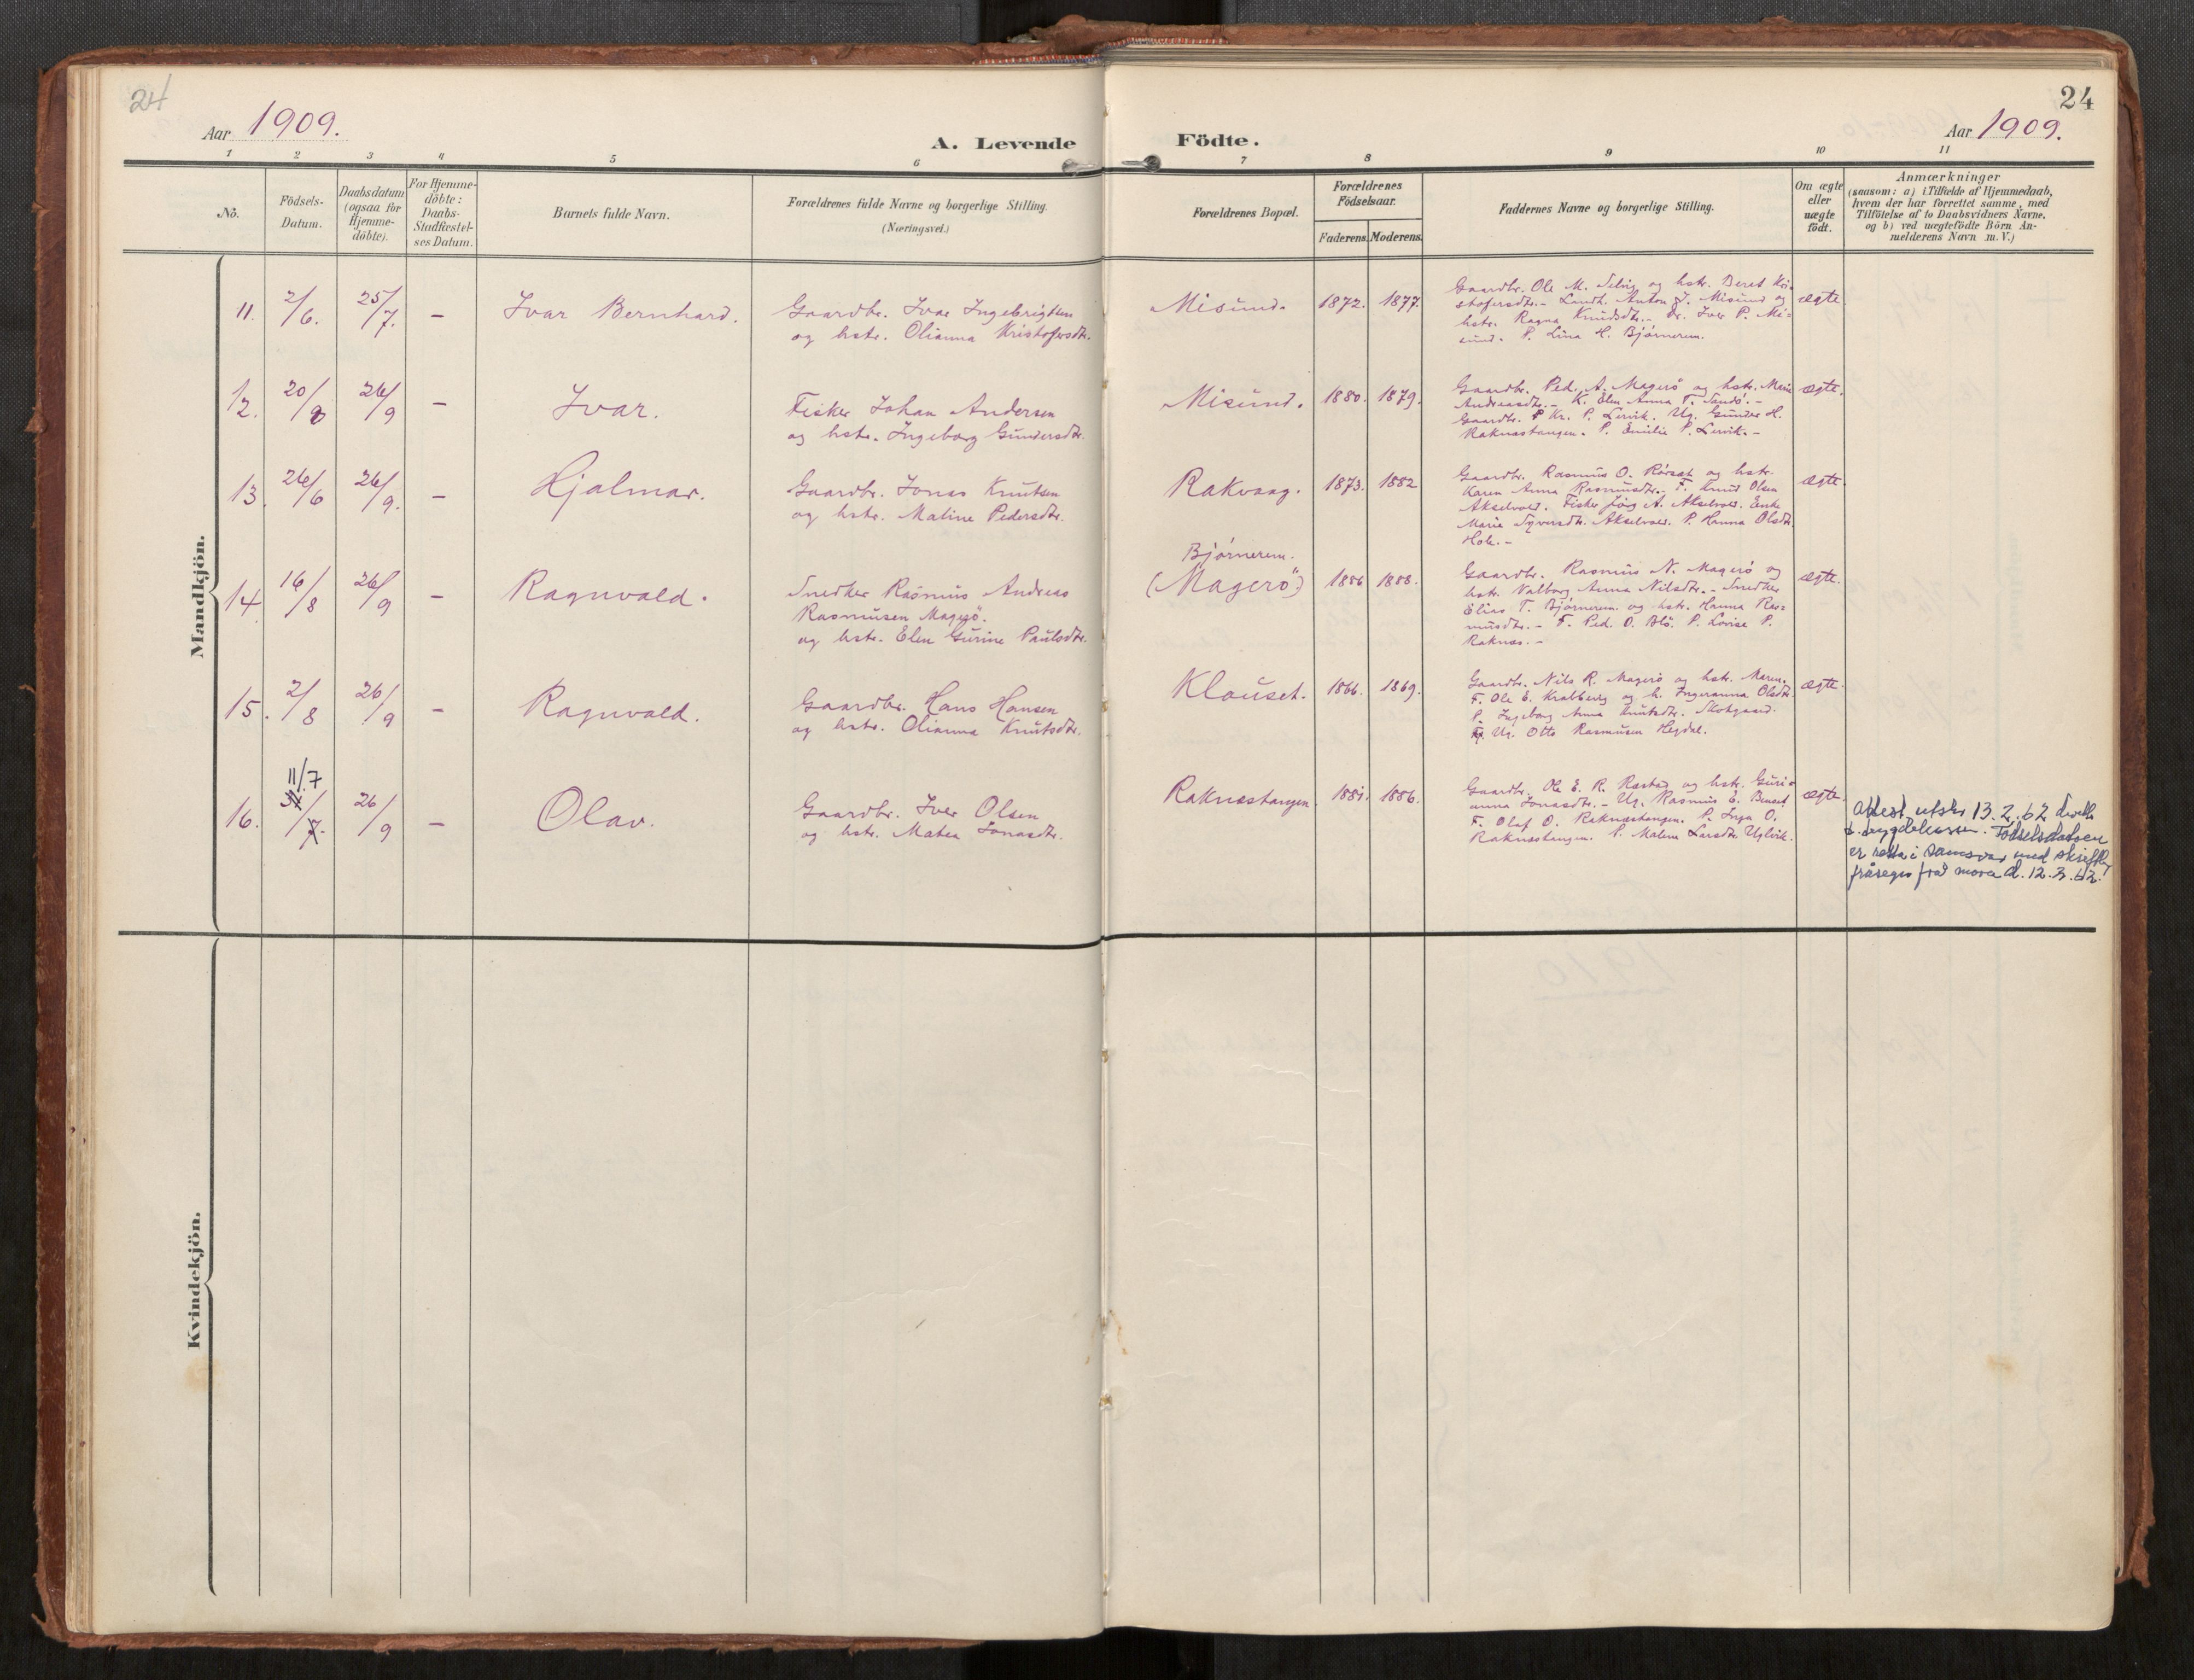 24
24
Aar 1909.
A. Levende Födte.
Aar 1909.
1 2 3 4 5 6 7 8 9 10 11
No.
Födsels-
Datum.
Daabsdatum
(ogsaa for
Hjemme-
döbte).
For Hjemme-
döbte:
Daabs-
Stadfæstel-
ses Datum.
Barnets fulde Navn.
Forældrenes fulde Navne og borgerlige Stilling.
(Næringsvei.)
Forældrenes Bopæl.
Forældrenes
Födselsaar.
Faderens. Moderens.
Faddernes Navne og borgerlige Stilling.
Om ægte
eller
uægte
födt.
Anmærkninger
(saasom: a) i Tilfælde af Hjemmedaab,
hvem der har forrettet samme, med
Tilföielse af to Daabsvidners Navne,
og b) ved uægtefödte Börn An-
melderens Navn m. V.)
Mandkjön.
11. 2/6. 25/7. – Ivar Bernhard.
Gaardbr. Ivar Ingebrigtsen
og hstr. Olianna Kristofersdtr.
Misund. 1872. 1877.
Gaardbr. Ole M. Selvig og hstr. Beret Kri-
stofersdtr. – Landh. Anton J. Misund og
hstr. Ragna Knudsdtr. – Dr. Iver P. Mi-
sund. P. Lina H. Bjørnerem.
ægte
12. 20/8 26/9 – Ivar.
Fisker Johan Andersen
og hstr. Ingeborg Gundersdtr.
Misund. 1880. 1879.
Gaardbr. Ped. A. Magerö og hstr. Marie
Andreasdtr. – K. Elen Anna T. Sandö. –
Gaardbr. Kr. P. Lervik. Ug. Gunder H.
Raknestangen. P. Emilie P. Lervik. –
ægte.
13. 26/6 26/9. – Hjalmar.
Gaardbr. Jonas Knutsen
og hstr. Maline Pedersdtr.
Rakvaag. 1873. 1882
Gaardbr. Rasmus O. Rørset og hstr.
Karen Anna Rasmusdtr. F. Knud Olsen
Akselvold. Fisker Jörg A. Akselvold. Enke
Marie Syversdtr. Akselvold. P. Hanna Olsdtr.
Hole. –
ægte.
14. 16/8 26/9 – Ragnvald.
Snedker Rasmus Andreas
Rasmusen Magerö.
og hstr. Elen Gurine Paulsdtr.
Bjørnerem.
(Magerö) 1886 1888.
Gaardbr. Rasmus N. Magerö og
hstr. Valborg Anna Nilsdtr. – Snedker
Elias T. Bjørnerem og hstr. Hanna Ras-
musdtr. – F. Ped. O. Blö. P. Lovise P.
Raknes. –
ægte.
15. 2/8 26/9 – Ragnvald.
Gaardbr. Hans Hansen
og hstr. Olianna Knutsdtr.
Klauset. 1866. 1869.
Gaardbr. Nils R. Magerö og hstr. Maren.
F. Ole E. Kralberg og h. Ingeranna Olsdtr.
P. Ingeborg Anna Knutsdtr. Skotgaard.
Ug. Otto Rasmusen Hegdal.
ægte.
11/7
16. 31/7. 26/9 – Olav.
Gaardbr. Iver Olsen
og hstr. Matea Jonasdtr.
Raknestangen. 1881. 1886.
Gaardbr. Ole E. R. Rästad og hstr. Guri-
anna Jonasdtr. – Ug. Rasmus E. Benset
F. Olaf O. Raknestangen. P. Inga O.
Raknestangen. P. Malene Larsdtr. Uglvik.
ægte.
Attest utskr. 13.2.62
t. trygdekassen. Fødselsdatoen
er retta i samsvar med skriftleg
fråsegn frå mora d. 12.2.62.
Kvindekjön.